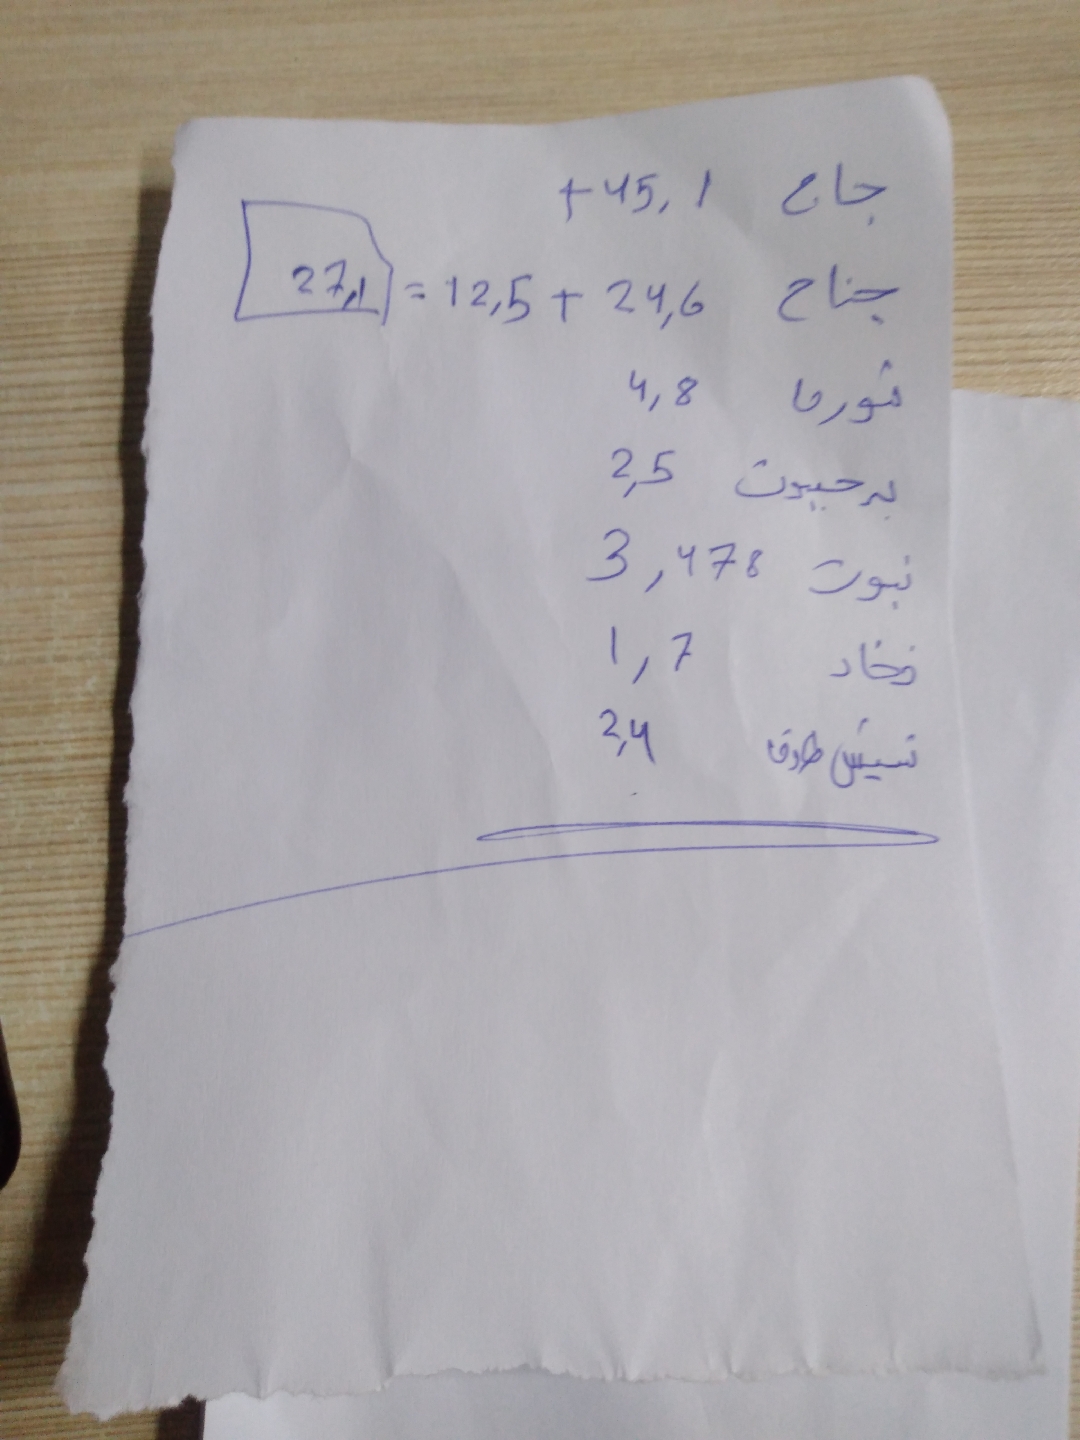 جاج +45,1
جناح 24,6 + 12,5 = 27,1
شورما 4,8
برجيوت 2,5
نبوت 3,478
فخاد 1,7
شيش طاوق 2,4